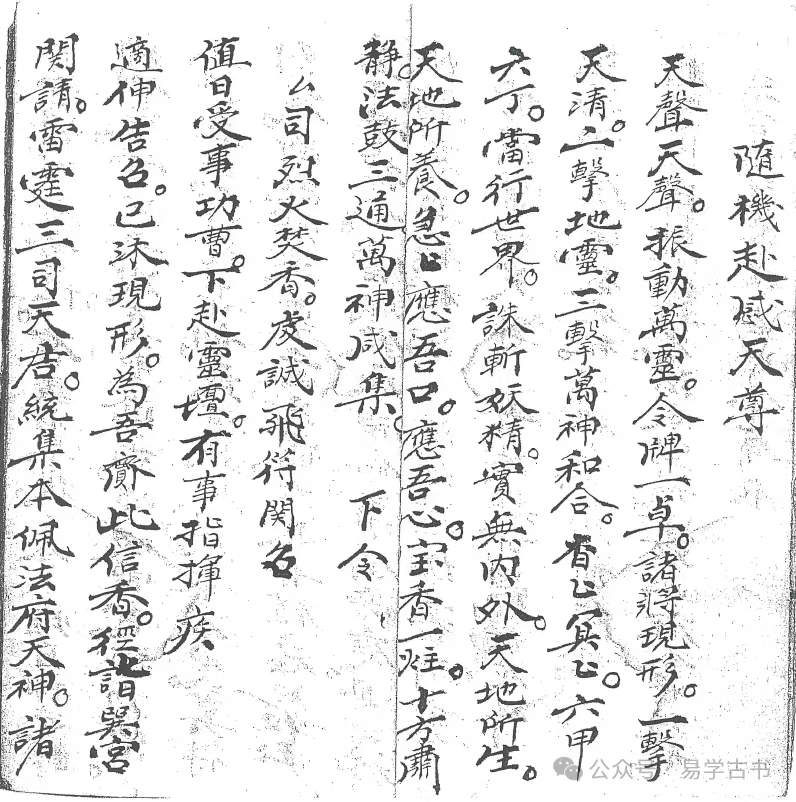 隨機赴感天尊
天聲天聲。振動萬靈。令牌一卓。諸將現形。一擊
天清。二擊地靈。三擊萬神和合。杳〻冥〻。六甲
六丁。當行世界。誅斬妖精。實無內外。天地所生。
天地所養。急〻應吾口。應吾心。宝香一炷。十方肅
静。法鼓三通萬神咸集。 下令
厶司烈火焚香。虔誠飛符関召
值日受事功曹。下赴靈壇。有事指揮 疾
適伸告召。已沐現形。為吾齎此信香。徑詣巽宮
関請。雷霆三司天君。統集本佩法府天神。諸
公众号 易学古书